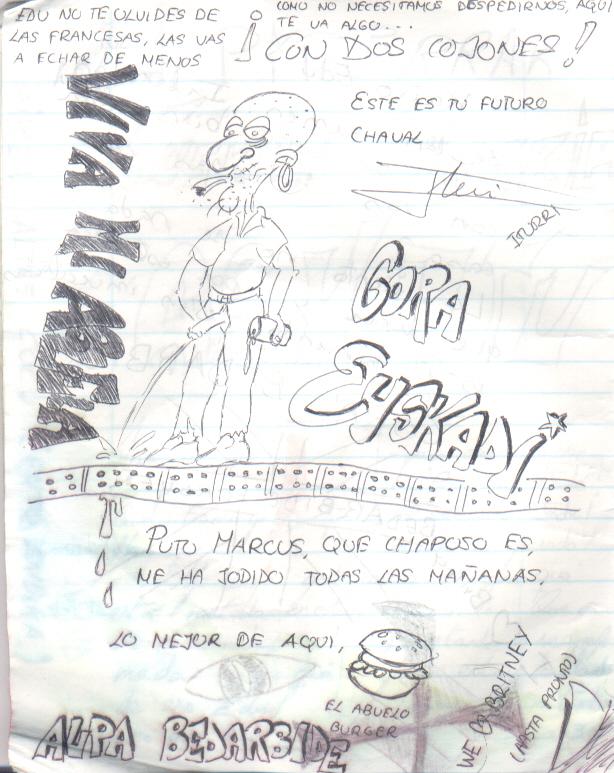 EDU NO TE OLVIDES DE
LAS FRANCESAS, LAS VAS
A ECHAR DE MENOS
COMO NO NECESITAMOS DESPEDIRNOS, AQUI
TE VA ALGO...
¡CON DOS COJONES!
VIVA MI ABLEA
ESTE ES TU FUTURO
CHAVAL
ITURRI
GORA
EUSKADI
PUTO MARCUS, QUE CHAPOSO ES,
ME HA JODIDO TODAS LAS MAÑANAS.
LO MEJOR DE AQUI,
EL ABUELO
BURGER
WE BRITNEY
(HASTA PRONTO)
AUPA BEDARBIDE